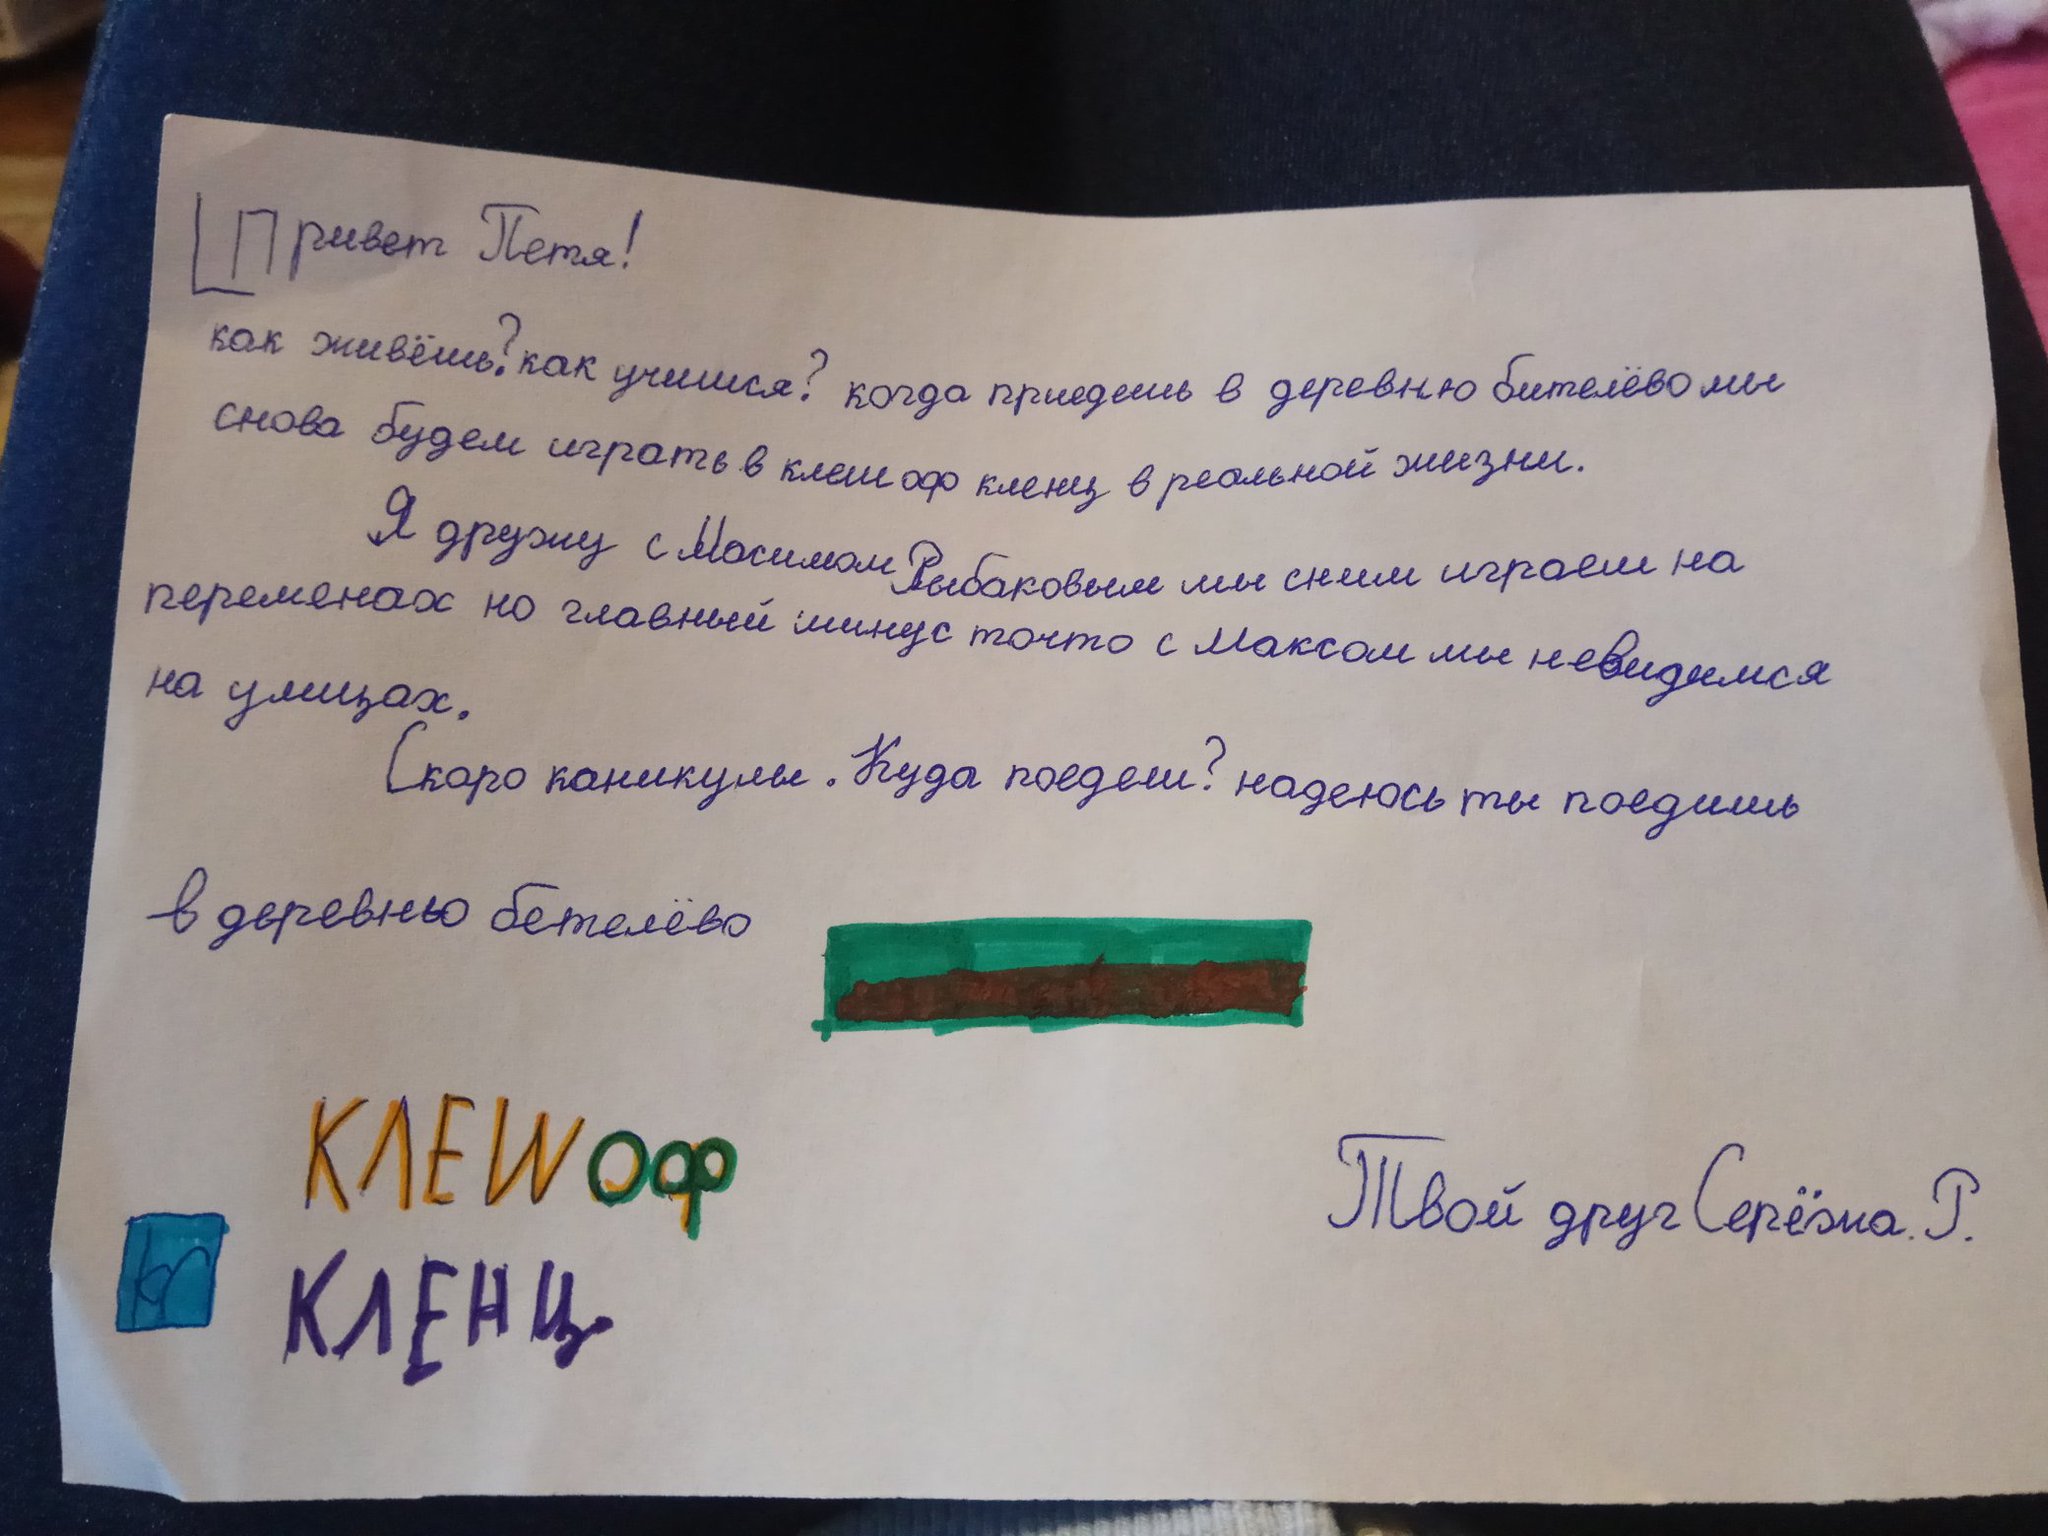 Привет Петя!
как живёшь? как учишся? когда приедешь в деревню бителёво мы
снова будем играть в клеш оф кленц в реальной жизни.
Я дружу с Масимом Рыбаковым мы сним играем на
переменах но главный минус точто с Максом мы невидимся
на улицах.
Скоро каникулы. Куда поедеш? надеюсь ты поедишь
в деревню бетелёво
КЛЕШ оф
КЛЕНЦ
Твой друг Серёжа. Р.